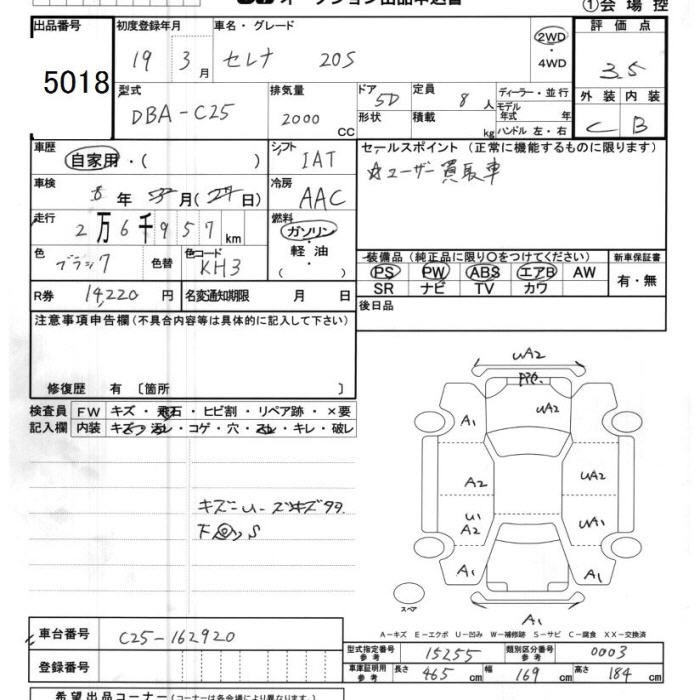 オークション出品申込書 ①会場控
出品番号 初度登録年月 車名・グレード 2WD ・4WD 評価点
5018 19 3月 セレナ 20S 3.5
型式 DBA-C25 排気量 2000 CC ドア 5D 形状 定員 8人 積載 kg ディーラー・並行 モデル年式 年 ハンドル 左・右 外装 内装
C B
車歴 自家用・( ) シフト IAT セールスポイント (正常に機能するものに限ります)
☆ユーザー買取車
車検 年 月( 日) 冷房 AAC
走行 2万6千957km 燃料 ガソリン・軽油・( )
色 ブラック 色替 色コード KH3
装備品 (純正品に限り○をつけてください) 新車保証書
PS PW ABS エアB AW 有・無
SR ナビ TV カワ
R券 14,220円 名変通知期限 月 日 後日品
注意事項申告欄 (不具合内容等は具体的に記入して下さい)
修復歴 有 〔箇所 〕
検査員 FW キズ・飛石・ヒビ割・リペア跡・×要
記入欄 内装 キズ・汚レ・コゲ・穴・スレ・キレ・破レ
UA2
UA2
A1
A2 UA2
U1 A2 UA1
A1 A1
スペア
A1
A-キズ E-エクボ U-凹み W-補修跡 S-サビ C-腐食 XX-交換済
車台番号 C25-162920
型式指定番号 参考 15255 類別区分番号 参考 0003
登録番号 車庫証明用 参考 長さ 465 cm 幅 169 cm 高さ 184 cm
希望出品コーナー (コーナーは各会場により異なります。)